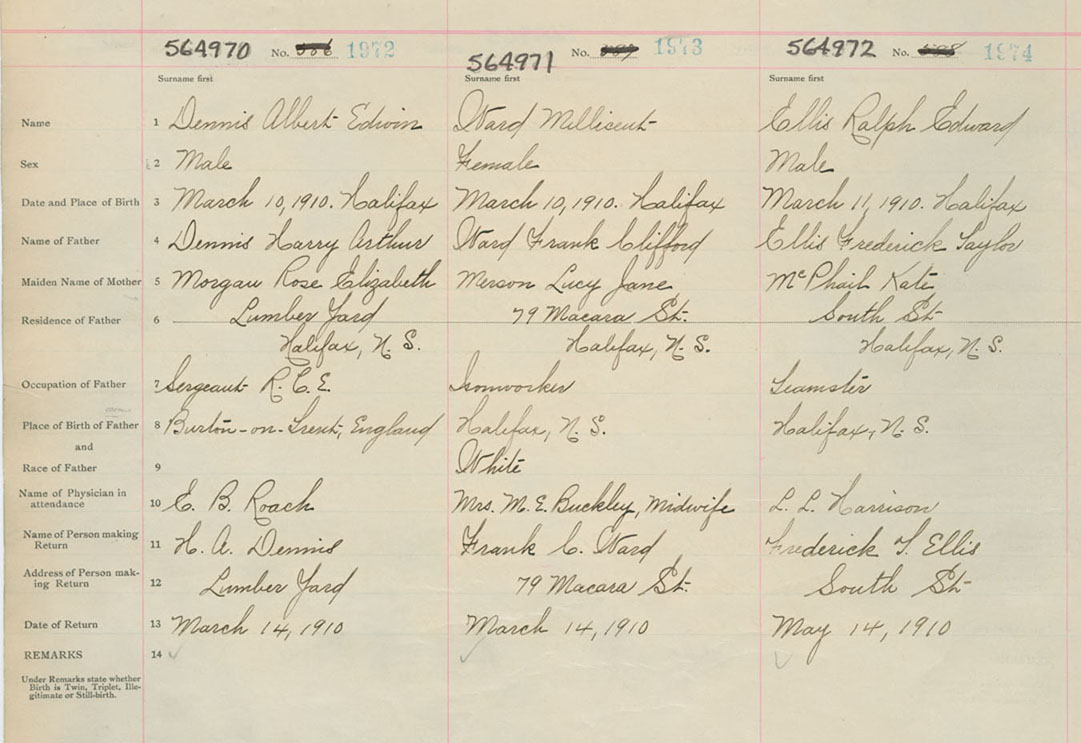 564970 No. 586 1972 564971 No. 587 1973 564972 No. 588 1974
Surname first Surname first Surname first
Name 1 Dennis Albert Edwin Ward Millicent Ellis Ralph Edward
Sex 2 Male Female Male
Date and Place of Birth 3 March 10, 1910. Halifax March 10, 1910. Halifax March 11, 1910. Halifax
Name of Father 4 Dennis Harry Arthur Ward Frank Clifford Ellis Frederick Taylor
Maiden Name of Mother 5 Morgan Rose Elizabeth Merson Lucy Jane McPhail Kate
Residence of Father 6 Lumber Yard 79 Macara St. South St
Halifax, N. S. Halifax, N. S. Halifax, N. S.
Occupation of Father 7 Sergeant R. C. E. Ironworker Teamster
Place of Birth of Father 8 Burton-on-Trent, England Halifax, N. S. Halifax, N. S.
and
Race of Father 9 White
Name of Physician in
attendance 10 E. B. Roach Mrs. M. E. Buckley, Midwife L. L. Harrison
Name of Person making
Return 11 H. A. Dennis Frank C. Ward Frederick T. Ellis
Address of Person mak-
ing Return 12 Lumber Yard 79 Macara St. South St
Date of Return 13 March 14, 1910 March 14, 1910 May 14, 1910
REMARKS 14
Under Remarks state whether
Birth is Twin, Triplet, Ille-
gitimate or Still-birth.